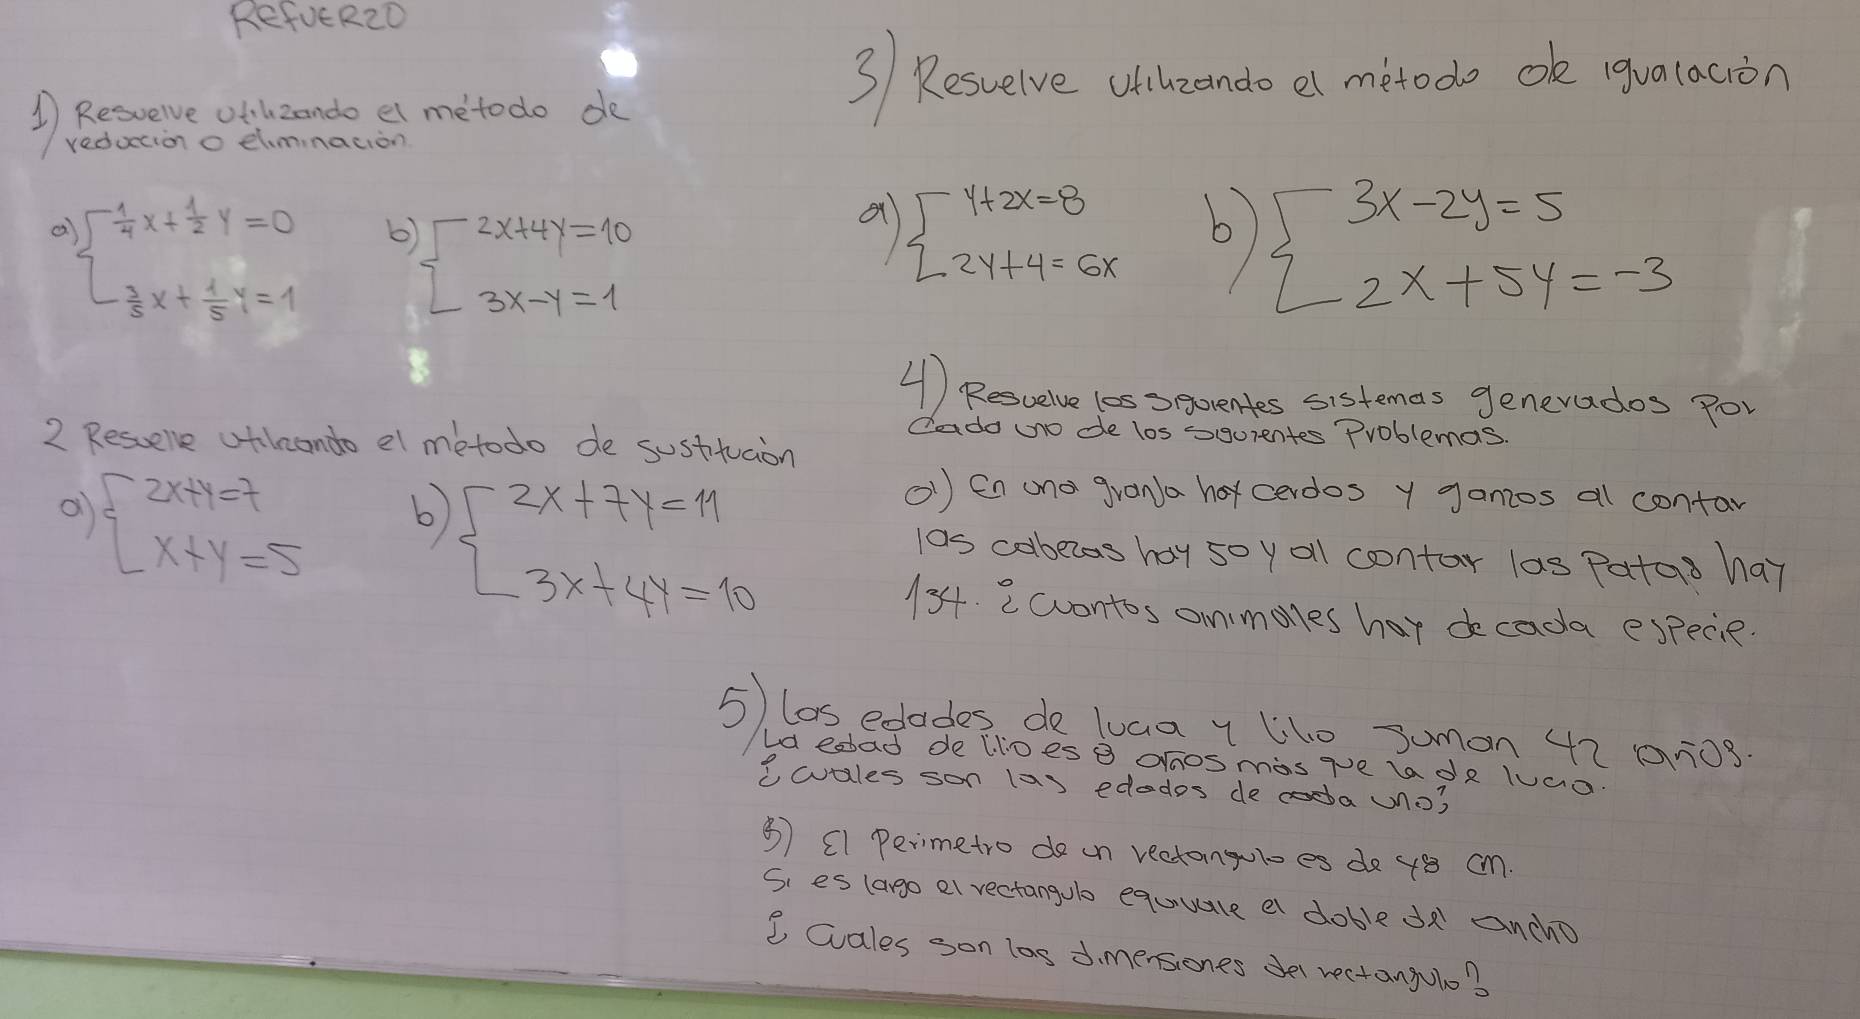 REFUERZO
1) Resuelve utilizando el método de
reducción o eliminación
a) { 1/4 x + 1/2 y = 0
3/5 x + 1/5 y = 1
b) { 2x+4y=10
3x-y=1
2 Resuelve utilizando el método de sustitución
a) { 2x+y=7
x+y=5
b) { 2x+7y=11
3x+4y=10
3) Resuelve utilizando el método de igualación
a) { y+2x=8
2y+4=6x
b) { 3x-2y=5
2x+5y=-3
4) Resuelve los siguientes sistemas generados por
Cada uno de los siguientes Problemas.
a) En una granja hay cerdos y ganzos al contar
las cabezas hay 50 y al contar las Patas hay
134. ¿Cuantos animales hay de cada especie.
5) Las edades de lucia y lilio suman 42 años.
La edad de lilio es 8 años más que la de lucia.
¿Cuales son las edades de cada uno?
El Perimetro de un rectangulo es de 48 cm.
Si es largo el rectangulo equivale el doble del ancho
¿Cuales son las dimensiones del rectangulo?